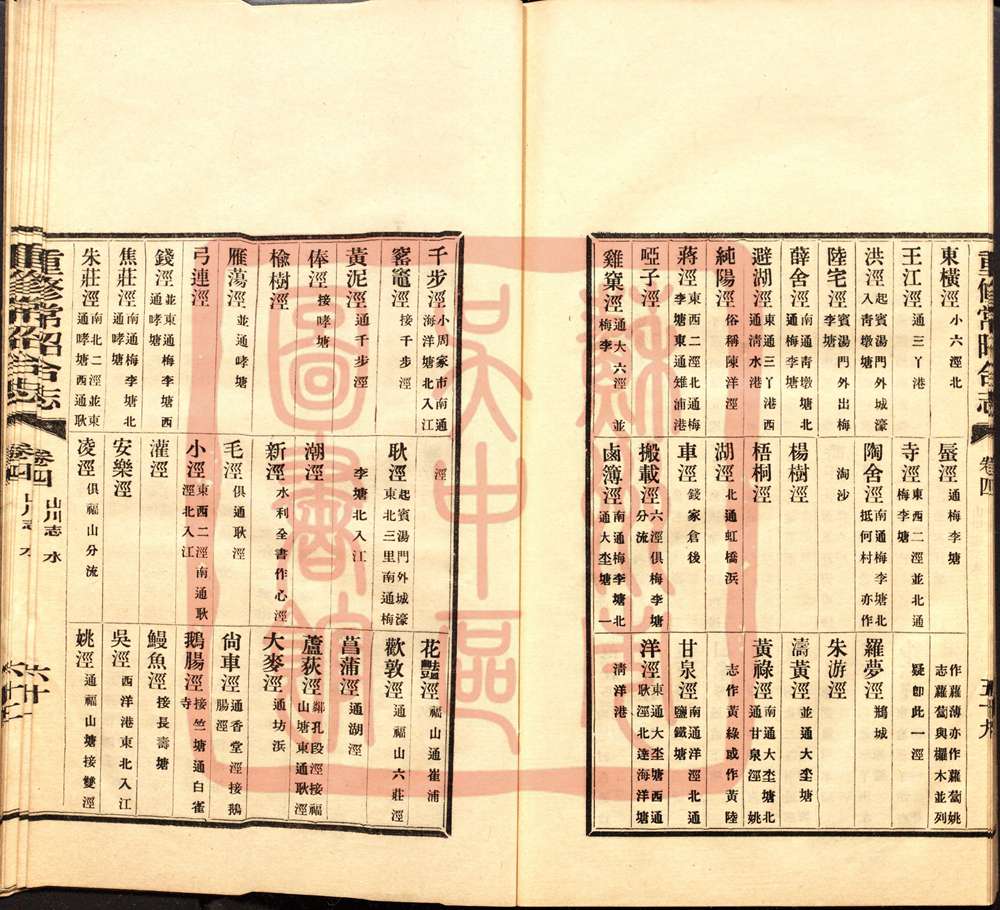 重修常昭合志
卷四
五十九
東橫涇 小六涇北
王江涇 通三丫港
洪涇 起賓湯門外城濠入青墩塘
陸宅涇 賓湯門外出梅李塘
薛舍涇 南通青墩塘北通梅李塘
避湖涇 東通三丫港西通清水港
純陽涇 俗稱陳洋涇
蔣涇 東西二涇北通梅李塘東通雉浦港
啞子涇
雞窠涇 通大六涇並梅李
蜃涇 通梅李塘
寺涇 東西二涇並北通梅李塘
陶舍涇 南通梅李塘北抵何村亦作淘沙
楊樹涇
梧桐涇
湖涇 北通虹橋浜
車涇 錢家倉後
搬載涇 六涇俱梅李塘分流
鹵簿涇 南通梅李塘北通大坔塘一
作蘿薄亦作蘿蔔姚志蘿蔔與欏木並列疑卽此一涇
羅夢涇 城
朱游涇
濤黃涇 並通大坔塘
黃祿涇 南通大坔塘北通甘泉涇姚志作黃綠或作黃陸
甘泉涇 南通洋涇北通鹽鐵塘
洋涇 東通大坔塘西通耿涇北達海洋塘清洋港
千步涇 小周家市南通海洋塘北入江
窰竈涇 接千步涇
黃泥涇 通千步涇
俸涇 接哮塘
榆樹涇
雁蕩涇 並通哮塘
弓連涇
錢涇 並東通梅李塘西通哮塘
焦莊涇 南通梅李塘北通哮塘
朱莊涇 南北二涇並東通哮塘西通耿
涇
耿涇 起賓湯門外城濠東北三里南通梅李塘北入江
潮涇
新涇 水利全書作心涇
毛涇 俱通耿涇
小涇 東西二涇南通耿涇北入江
灌涇
安樂涇
凌涇 俱福山分流
花涇 福山通崔浦
歡敦涇 通福山六莊涇
菖蒲涇 通湖涇
蘆荻涇 鄰孔段涇接福山塘東通耿涇
大麥涇 通坊浜
尙車涇 通香堂涇接鵝腸涇
鵝腸涇 接竺塘通白雀寺
鰻魚涇 接長壽塘
吳涇 西洋港東北入江
姚涇 通福山塘接雙涇
重修常昭合志
卷四 山川志 水
六十
蘇州市吳中區圖書館